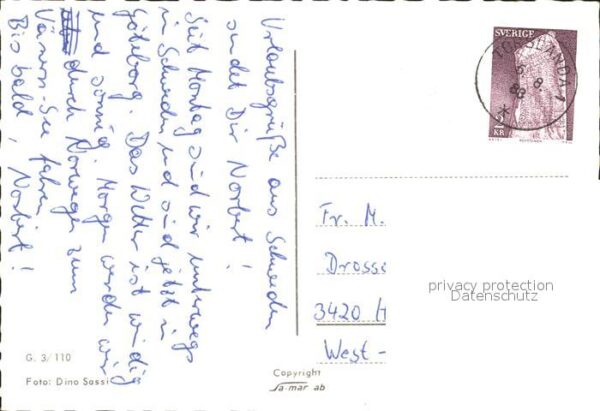 Urlaubsgrüße aus Schweden
sendet Dir Norbert!
Seit Montag sind wir unterwegs
in Schweden und sind jetzt in
Göteborg. Das Wetter ist windig
und sonnig. Morgen werden wir
durch Norwegen zum
Vänern See fahren
Bis bald, Norbert!
SVERIGE
2 KR
TORSLANDA 1
5 8
88
Fr. M.
Drosse
3420 H
West-
privacy protection
Datenschutz
G. 3/110
Foto: Dino Sassi
Copyright
sa-mar ab